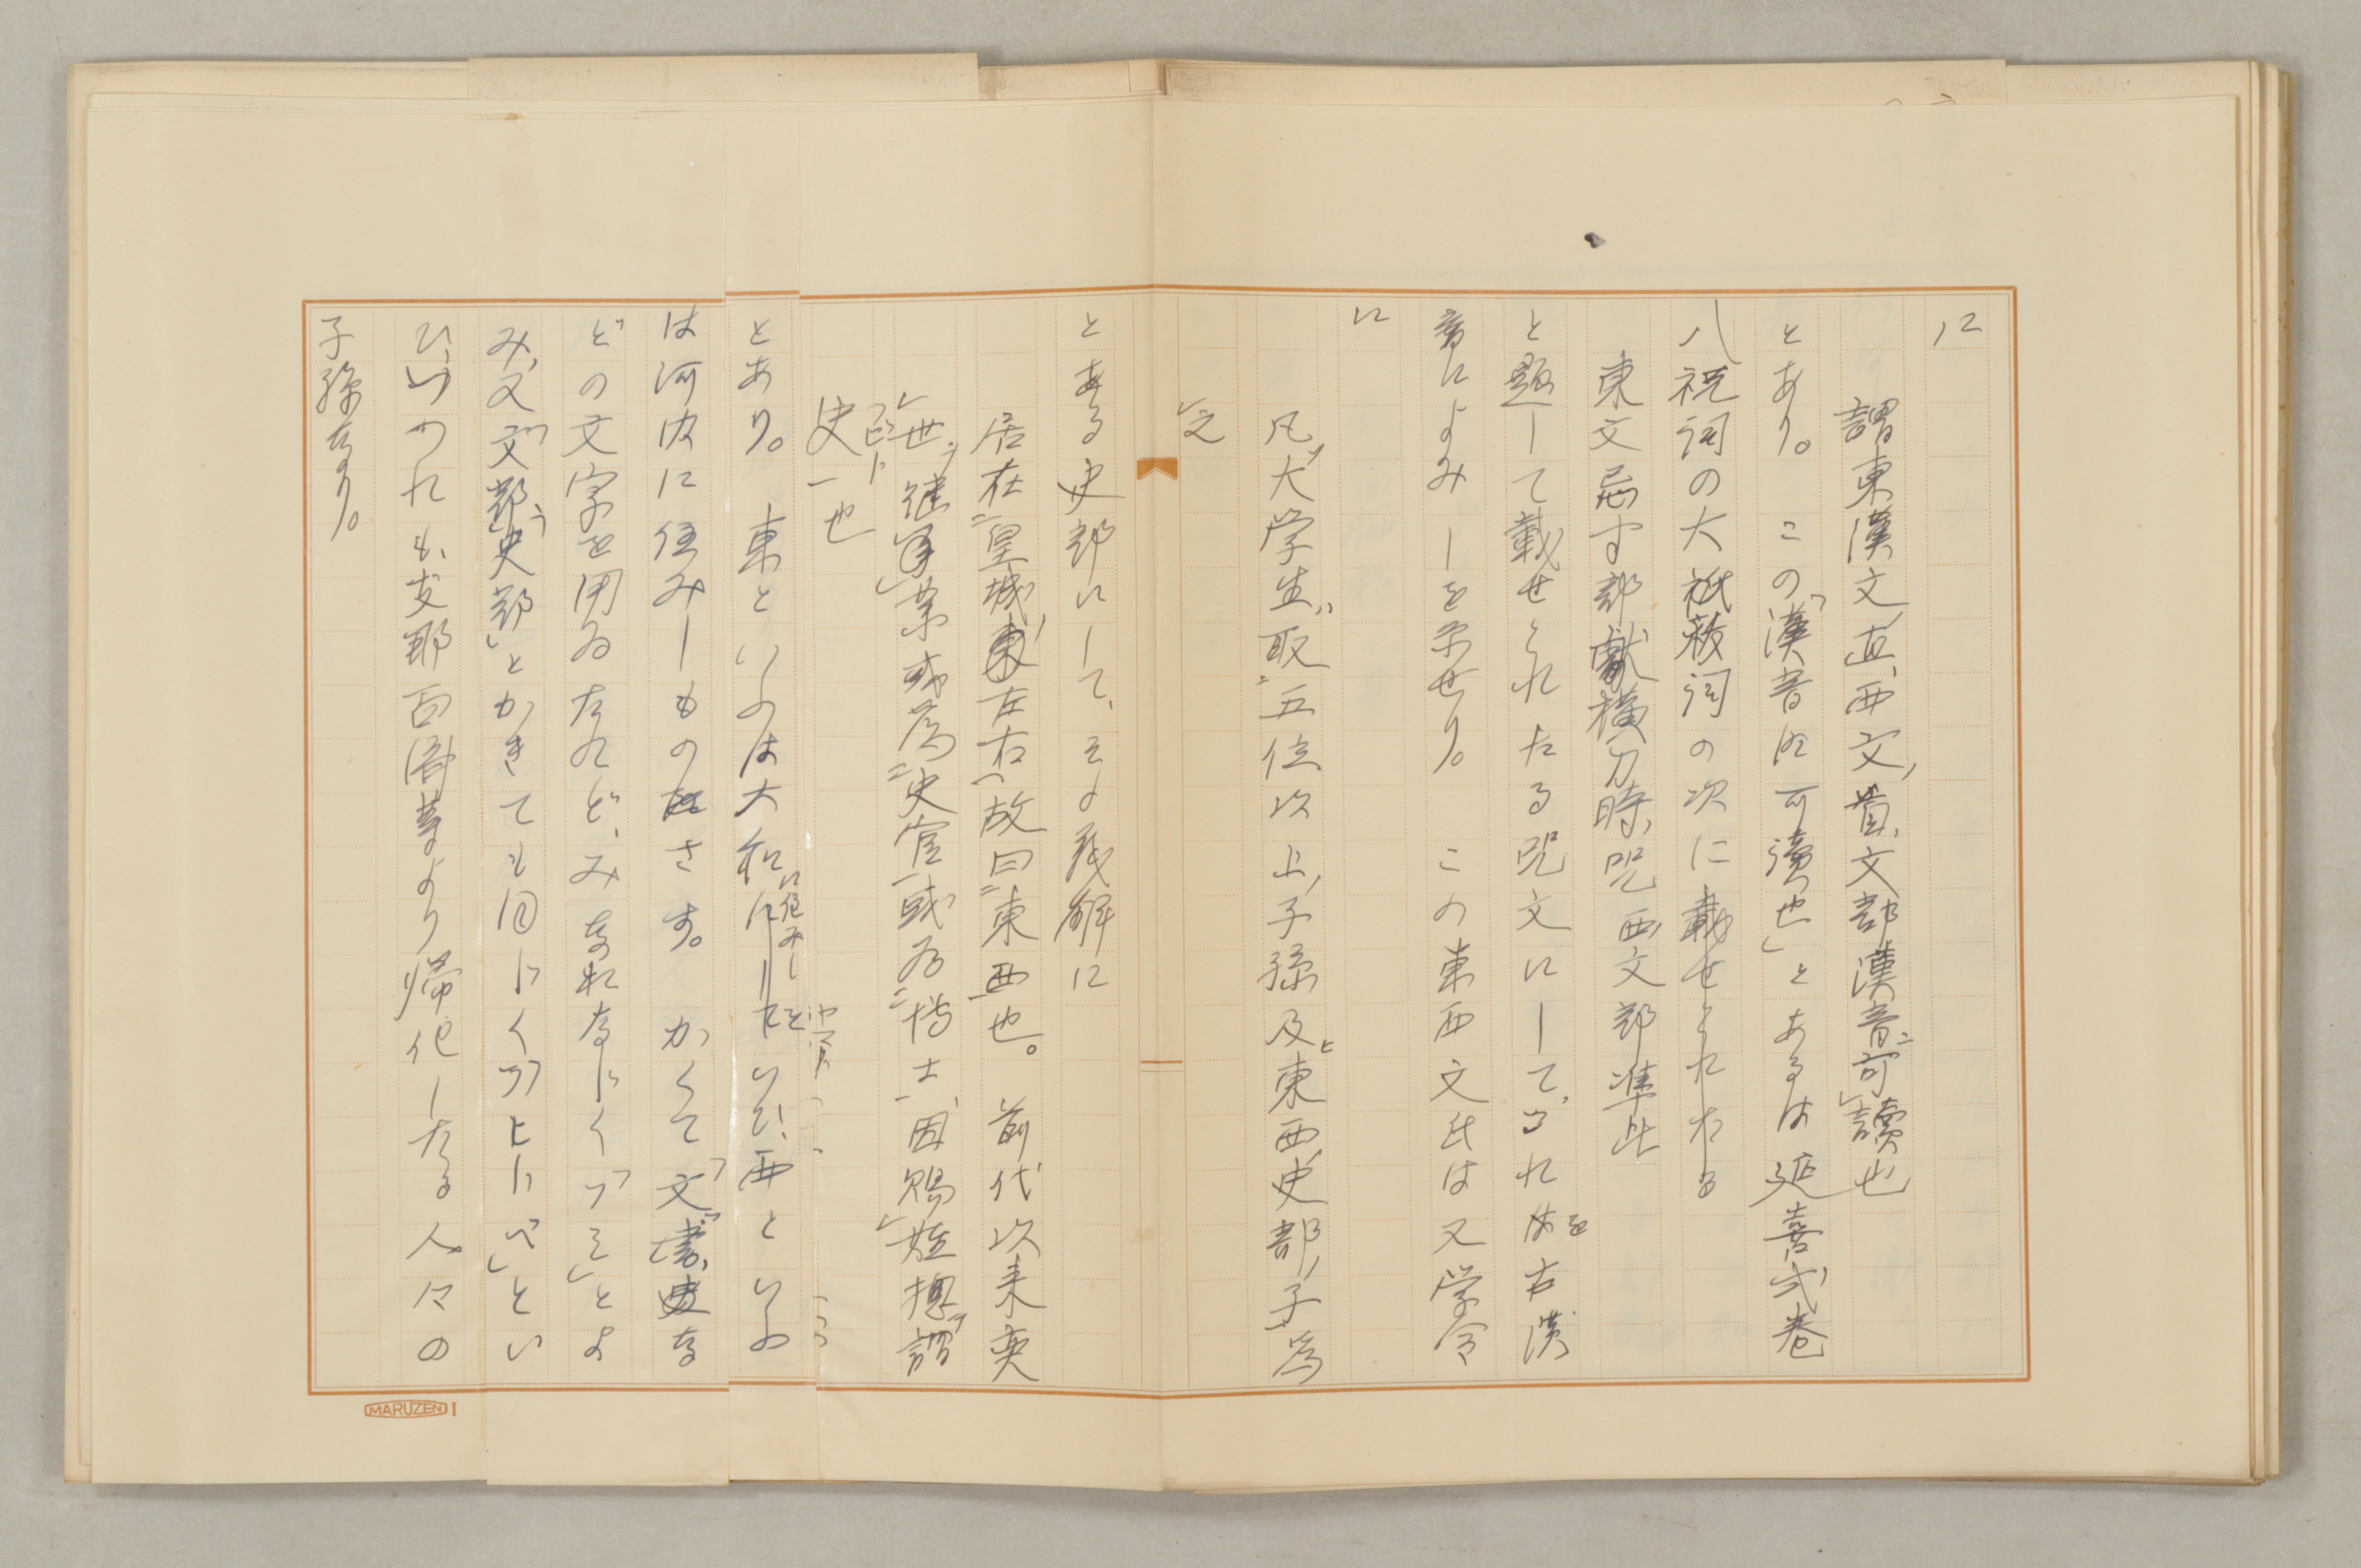 に
謂東漢文直、西文首、文部漢音ニ可讀也
とあり。この「漢音に可讀也」とあるは延喜式巻
八祝詞の大祓詞の次に載せられたる
東文忌寸部獻横刀時咒西文部準此
と題して載せられたる咒文にして、これを古漢
音によみしを示せり。この東西文氏は又学令
に
凡大学生取五位以上子孫及東西史部子為
之
とある史部にして、その義解に
居在皇城左右故曰東西也。前代以来奕
世継業或為史官或為博士因賜姓揔謂
史也
とあり。東といふは大和に住みしをいひ、西といふ
は河内に住みしものをさす。かくて文、書、史な
どの文字を用ゐたれど、みなおなじく「フミ」とよ
み、又「文部」「史部」とかきても同じく「フヒトベ」とい
ひ、いづれも支那百済等より帰化したる人々の
子孫なり。
MARUZEN I